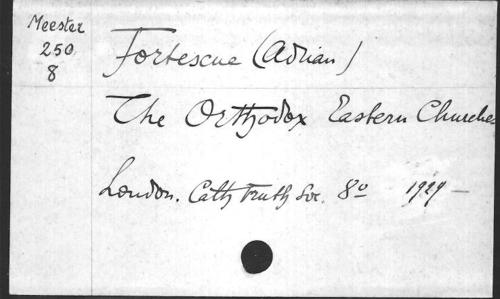 Meester
250
8
Fortescue (Adrian)
The Orthodox Eastern Churches
London. Cath Truth Soc. 8º 1929 –